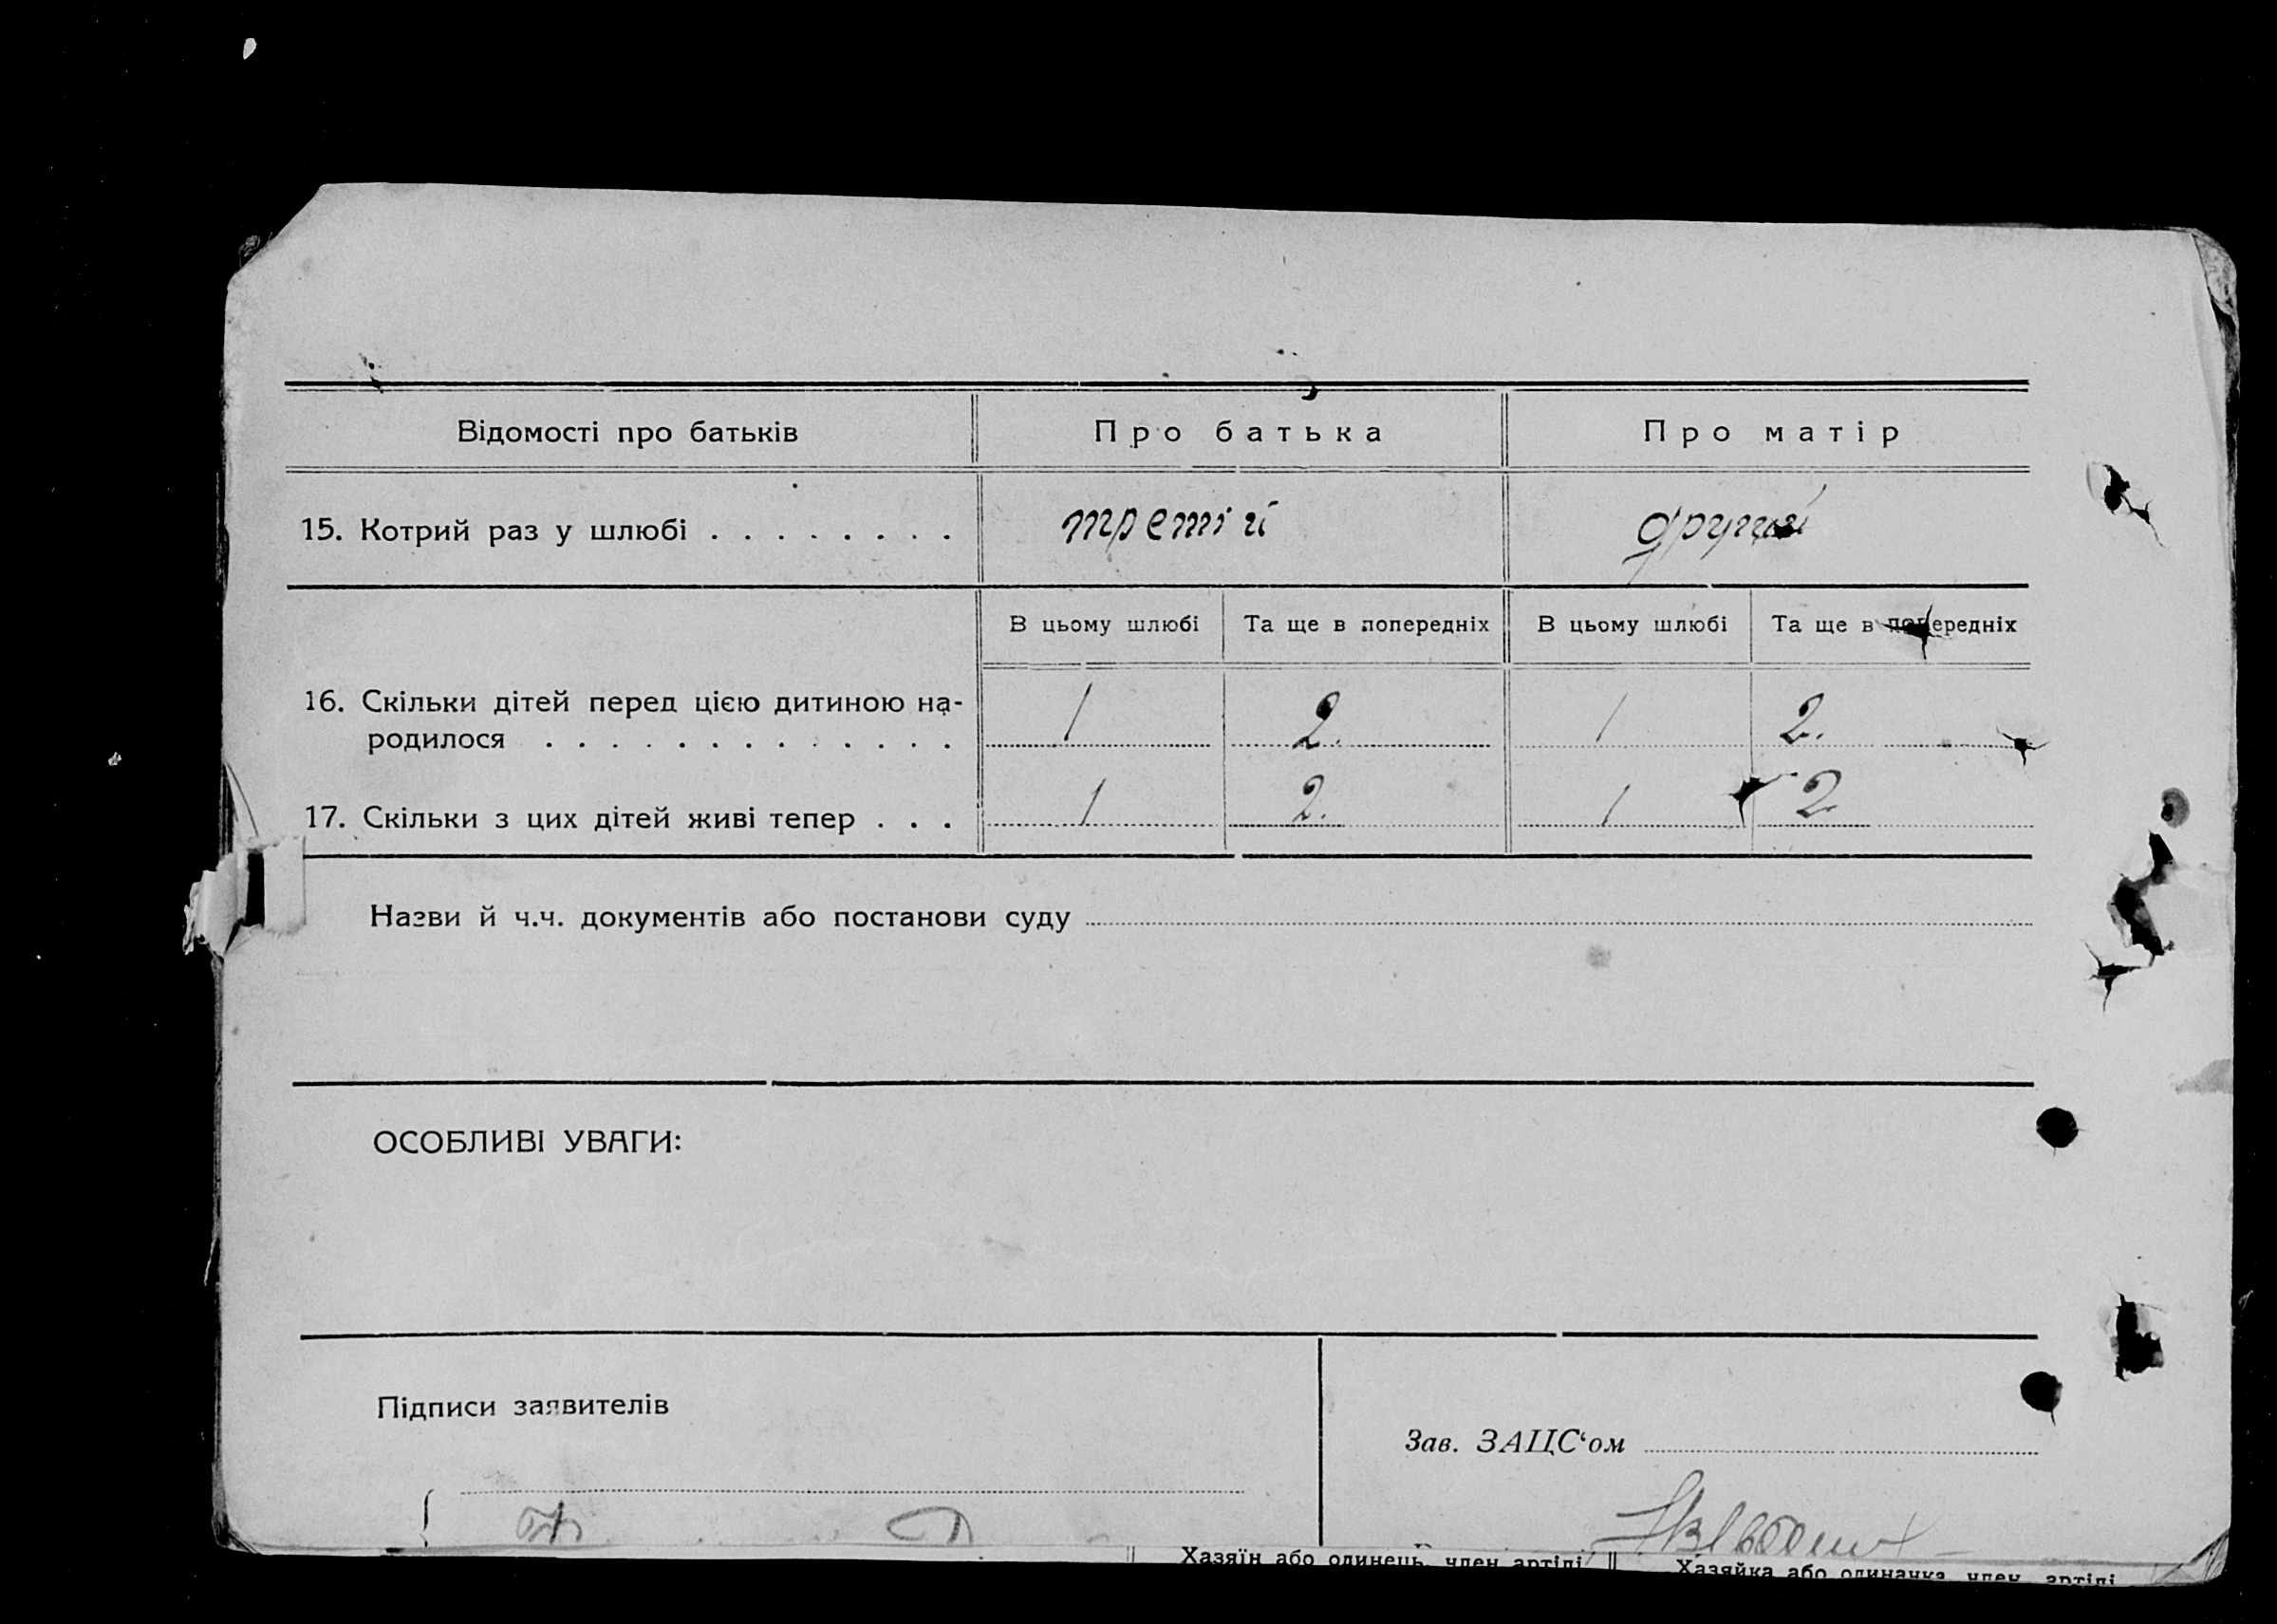 Відомості про батьків Про батька Про матір
15. Котрий раз у шлюбі . . . . . . . . третій другий
В цьому шлюбі Та ще в попередніх В цьому шлюбі Та ще в попередніх
16. Скільки дітей перед цією дитиною на-
родилося . . . . . . . . . . . . . 1 2. 1 2.
17. Скільки з цих дітей живі тепер . . . 1 2. 1 2
Назви й ч.ч. документів або постанови суду
ОСОБЛИВІ УВАГИ:
Підписи заявителів
Зав. ЗАЦС‘ом
Хазяїн або одинець, член артілі Хазяйка або одиначка, член артілі